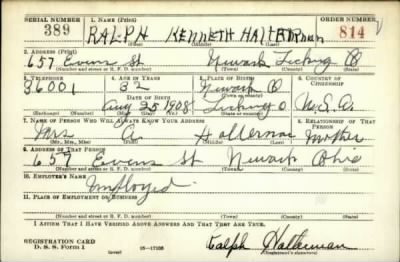 SERIAL NUMBER 1. NAME (Print) ORDER NUMBER
389 RALPH KENNETH HALTERMAN 814
(First) (Middle) (Last)
2. ADDRESS (Print)
657 Evans St Newark Licking O
(Number and street or R. F. D. number) (Town) (County) (State)
3. TELEPHONE 4. AGE IN YEARS 5. PLACE OF BIRTH 6. COUNTRY OF CITIZENSHIP
36001 32 Newark O
DATE OF BIRTH (Town or county)
Aug 25 1908 Licking O U.S.A.
(Exchange) (No.) (Mo.) (Day) (Yr.) (State or country)
7. NAME OF PERSON WHO WILL ALWAYS KNOW YOUR ADDRESS 8. RELATIONSHIP OF THAT PERSON
Mrs Halterman Mother
(Mr., Mrs., Miss) (First) (Middle) (Last)
9. ADDRESS OF THAT PERSON
657 Evans St Newark Ohio
(Number and street or R. F. D. number) (Town) (County) (State)
10. EMPLOYER'S NAME
11. PLACE OF EMPLOYMENT OR BUSINESS
(Number and street or R. F. D. number) (Town) (County) (State)
I AFFIRM THAT I HAVE VERIFIED ABOVE ANSWERS AND THAT THEY ARE TRUE.
REGISTRATION CARD
D. S. S. Form 1 (over) 16—17105 Ralph Halterman
(Registrant's signature)